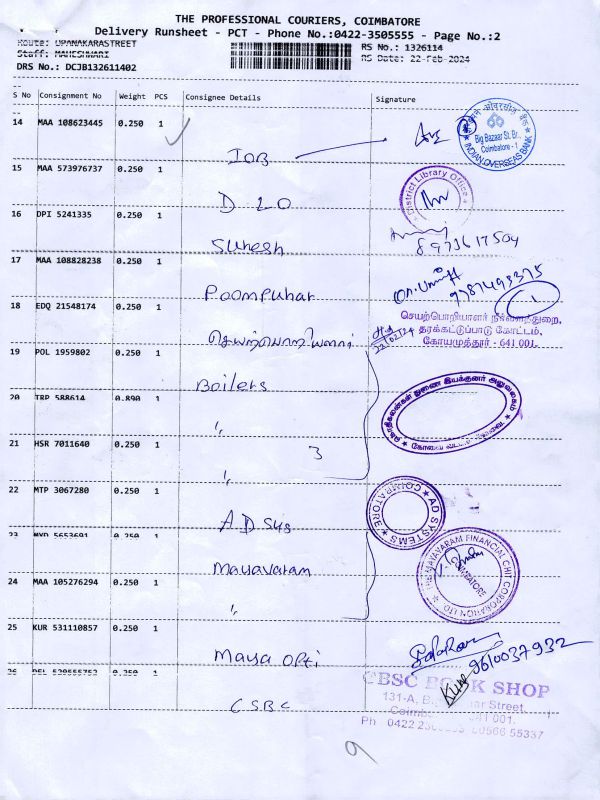 THE PROFESSIONAL COURIERS, COIMBATORE
Delivery Runsheet - PCT - Phone No.:0422-3505555 - Page No.:2
Route: UPANAKARASTREET
RS No.: 1326114
Staff: MAHESHWARI
RS Date: 22-Feb-2024
DRS No.: DCJB132611402
S No Consignment No Weight PCS Consignee Details Signature
14 MAA 108623445 0.250 1
IOB
Big Bazaar St. Br.
Coimbatore - 1
INDIAN OVERSEAS BANK
15 MAA 573976737 0.250 1
DLO
District Library Office
16 DPI 5241335 0.250 1
Suresh
8973617504
17 MAA 108828238 0.250 1
Poompuhar
9787493375
18 EDQ 21548174 0.250 1
செயற்பொறியாளர்
செயற்பொறியாளர்
தரக்கட்டுப்பாடு கோட்டம்,
கோயமுத்தூர் - 641 001.
22/02/24
19 POL 1959802 0.250 1
Boilers
20 TRP 588614 0.890 1
"
21 HSR 7011640 0.250 1
3
"
கொதிகலன்கள் துணை இயக்குனர் அலுவலகம்
22 MTP 3067280 0.250 1
AD Sys
AD SYSTEMS
COIMBATORE
23 0.250 1
Mayavaram
MAYAVARAM FINANCIAL CHIT CORPORATION LTD.
COIMBATORE
24 MAA 105276294 0.250 1
"
25 KUR 531110857 0.250 1
Maya Opti
9610037932
26 0.250 1
CSBC
CBSC BOOK SHOP
131-A, Street
641 001.
Ph 0422 55337
9